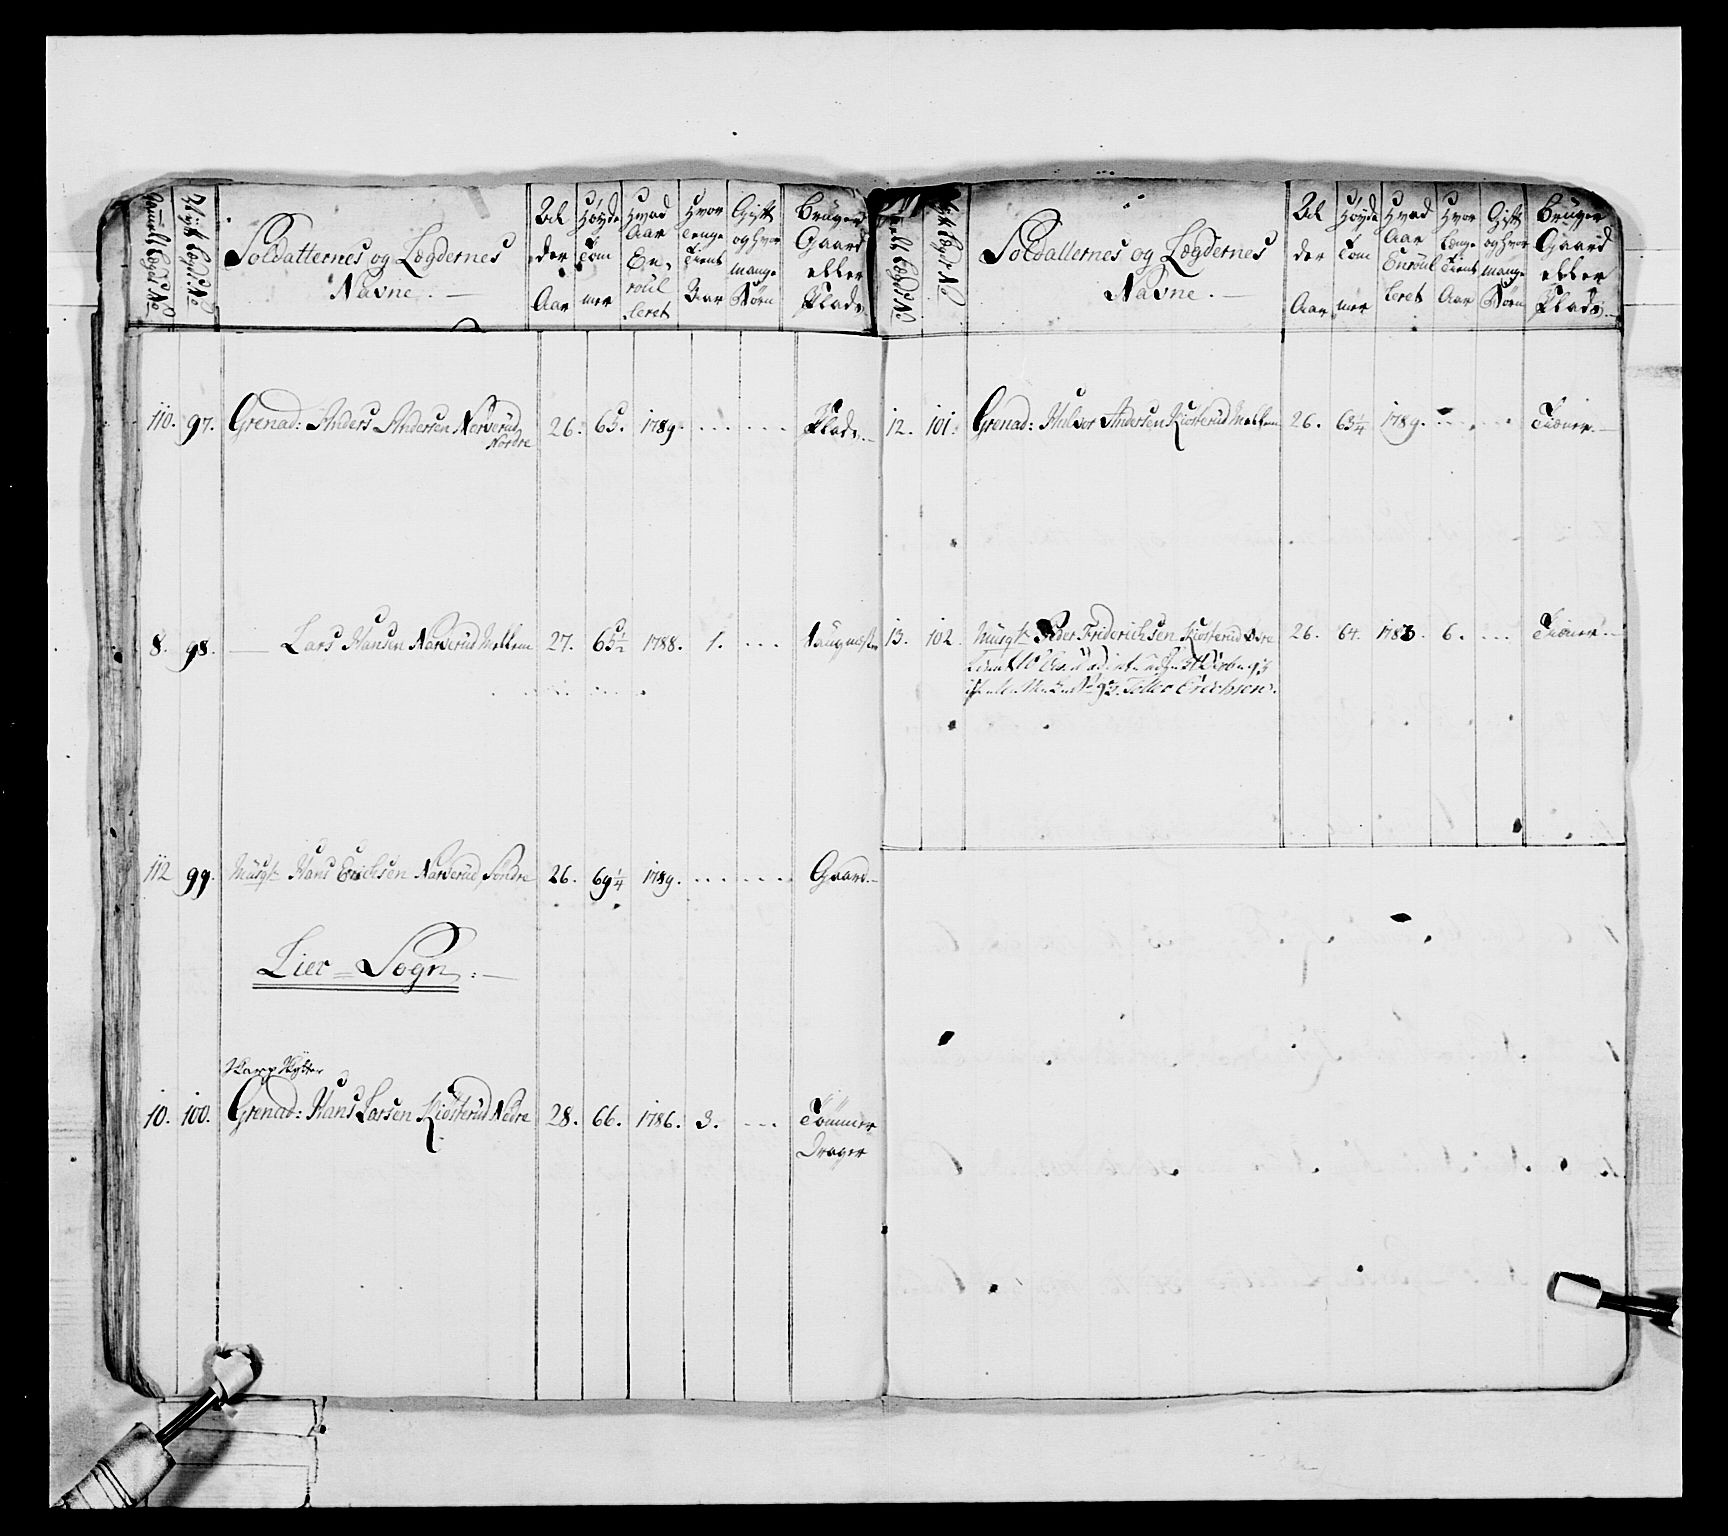 Gamell Lægd No
Nÿtt Lægd No
Soldatternes og Lægdernes
Navne.
Al
der
Aar
Høÿde
Tom
mer
Hvad
Aar
En-
roül
leret
Hvor
lenge
Tient
Aar
Gift
og hvor
mange
Børn
Brüger
Gaard
eller
Plads
110. 97. Grenad: Anders Andersen Nordre 26. 65. 1789. Plads.
8. 98. — Lars Hansen Narverud Mellem 27. 65½ 1788. 1.
112 99. Müsqt Hans Erichsen Narverüd Søndre 26. 69¼ 1789. Gaard.
Lier = Sogn:
Skarp Skÿtter
10. 100. Grenad: Hans Larsen Kiøsterud Nedre 28. 66. 1786. 3. Tømmer
Drager
Lægd No
Nÿtt Lægd No
Soldatternes og Lægdernes
Navne.
Al
der
Aar
Høÿde
Tom
mer
Hvad
Aar
Enroül
leret
Hvor
Længe
Tient
Aar
Gift
og hvor
mange
Børn
Brüger
Gaard
eller
Plads.
12. 101. Grenad: Halvor Andersen Kiøsterud Mellem 26. 63¼ 1789. Tiener.
13. 102. Müsqt Peder Friderichsen Kiøsterud Øvre 26. 64. 1783 6. Tiener.
Erichsen.